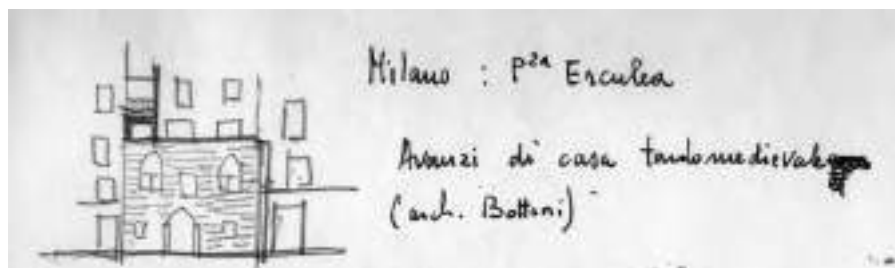 Milano : Pza Erculea
Avanzi di casa tardomedievale
(arch. Bottoni)